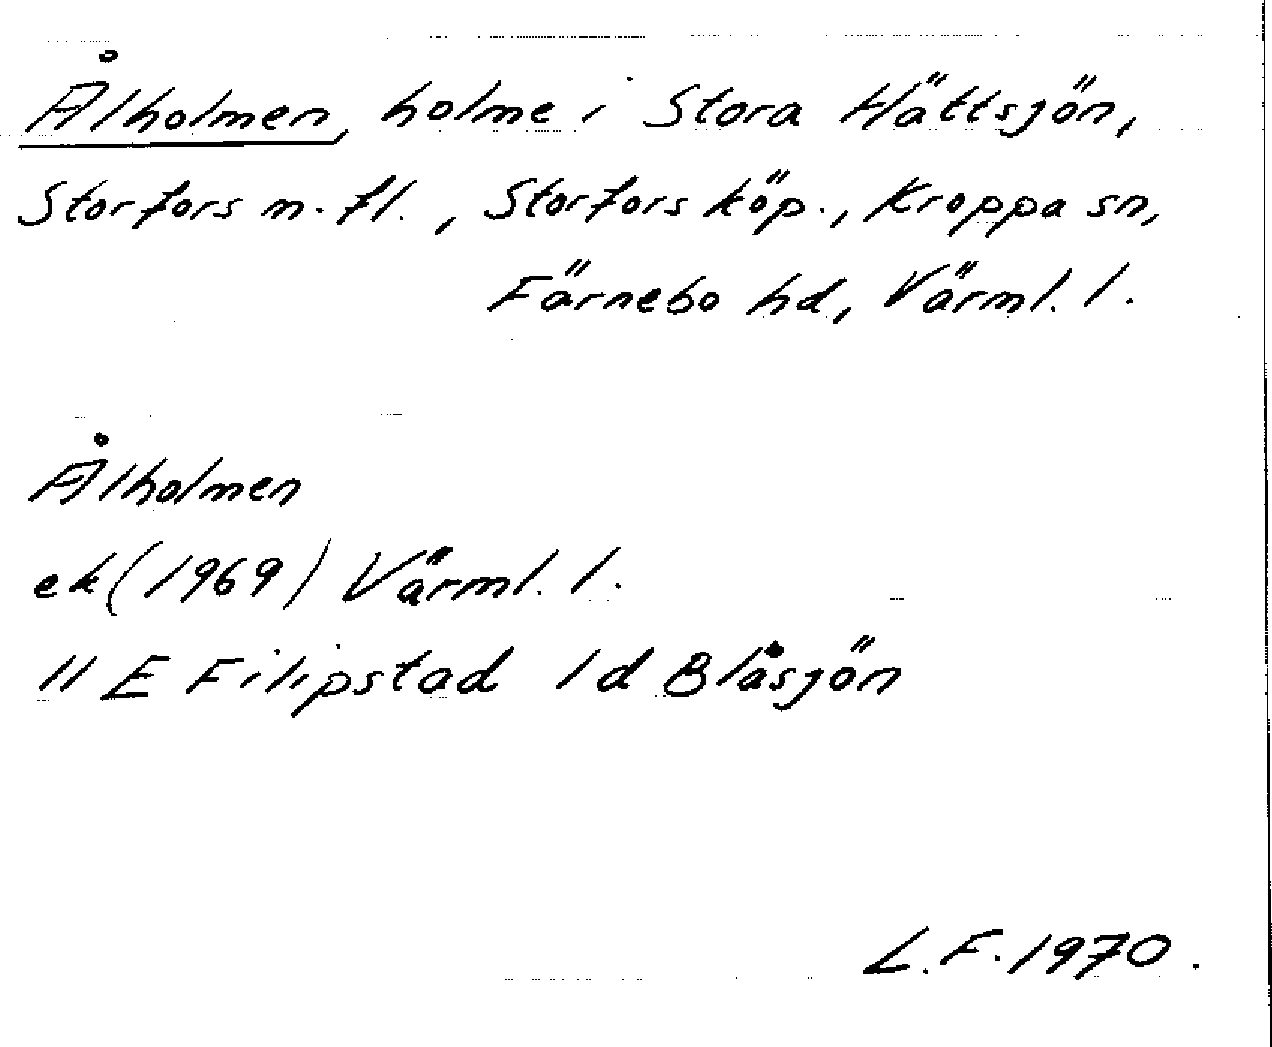 Ålholmen, holme i Stora Hättsjön,
Storfors m. fl., Storfors köp., Kroppa sn,
Färnebo hd, Värml. l.
Ålholmen
ek (1969) Värml. l.
11 E Filipstad 1d Blåsjön
L.F. 1970.